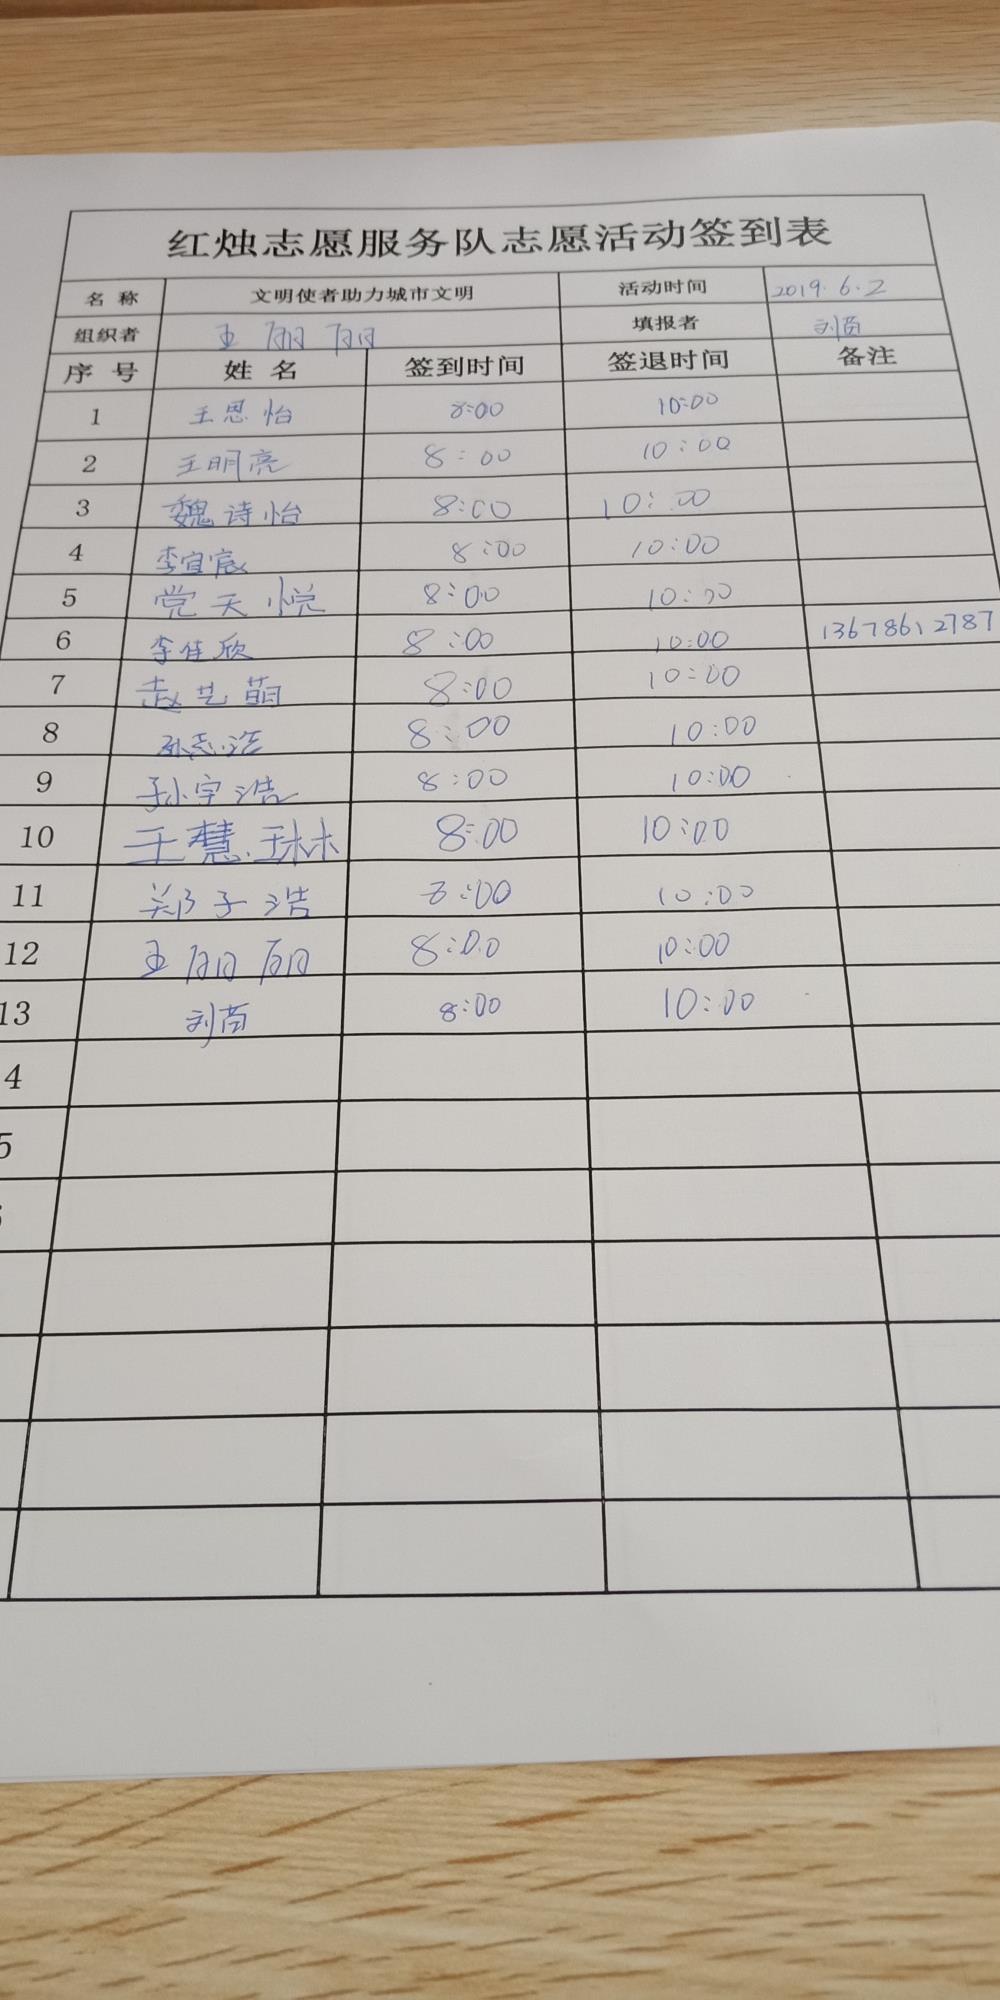 红烛志愿服务队志愿活动签到表
名 称 文明使者助力城市文明 活动时间 2019.6.2
组织者 王丽丽 填报者 刘茵
序 号 姓 名 签到时间 签退时间 备注
1 王思怡 8:00 10:00
2 王明亮 8:00 10:00
3 魏诗怡 8:00 10:00
4 李宜宸 8:00 10:00
5 党天悦 8:00 10:00
6 李佳欣 8:00 10:00 13678612787
7 赵艺萌 8:00 10:00
8 孙志浩 8:00 10:00
9 孙宇浩 8:00 10:00
10 王慧琳 8:00 10:00
11 郑子浩 8:00 10:00
12 王丽丽 8:00 10:00
13 刘茵 8:00 10:00
4
5